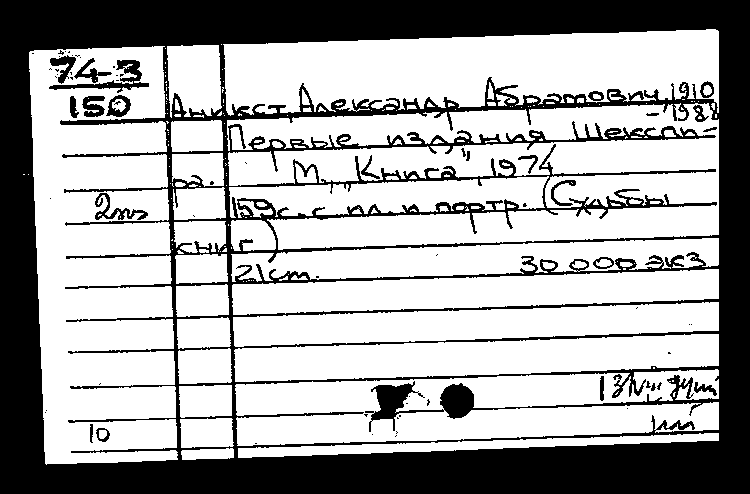 74-3
150
Аникст, Александр Абрамович, 1910
-1988
Первые издания Шекспи-
ра. М., "Книга", 1974.
159 с. с ил. и портр. (Судьбы
книг)
21 cm. 30 000 экз
10